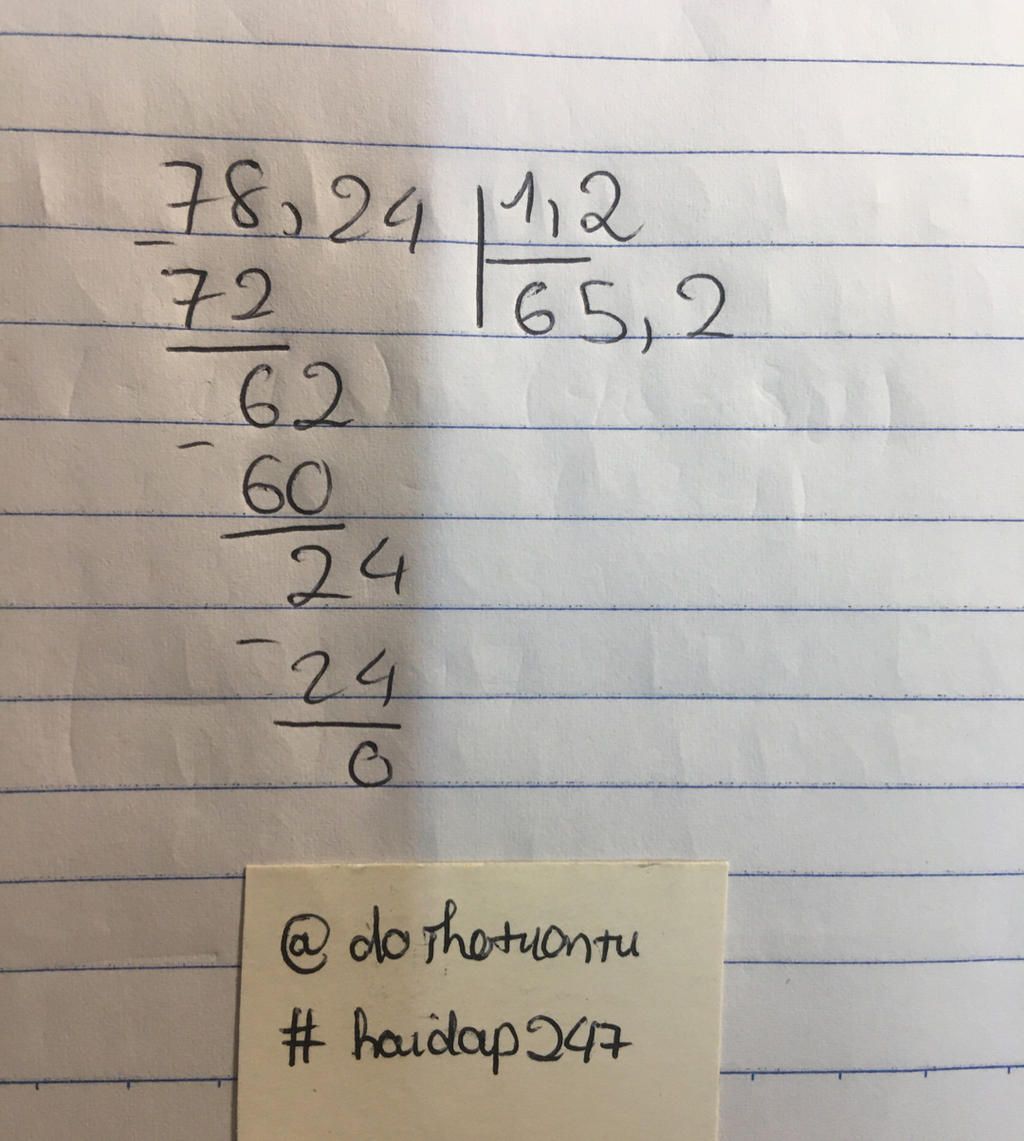 78,24 | 1,2
- 72 | 65,2
62
- 60
24
- 24
0
@ dothetuontu
# haidap247